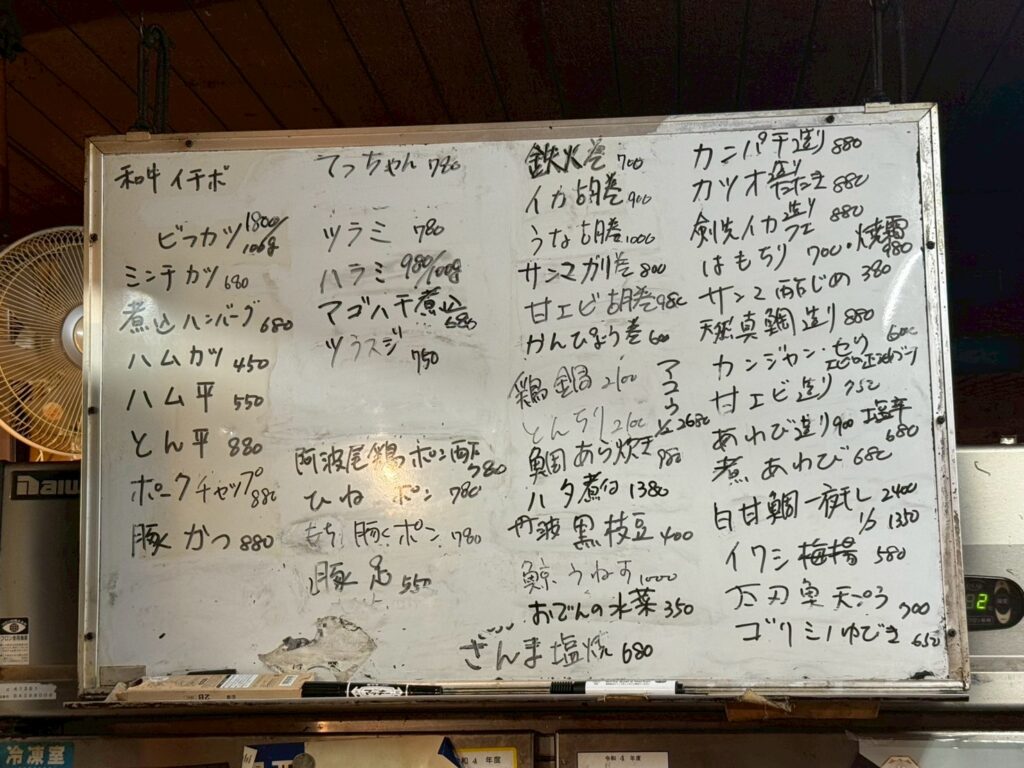 和牛イチボ
ビフカツ 1800/100g
ミンチカツ 680
煮込ハンバーグ 680
ハムカツ 450
ハム平 550
とん平 880
ポークチャップ 880
豚かつ 880
てっちゃん 780
ツラミ 780
ハラミ 980/100g
アゴハチ煮込 680
ツラスジ 750
阿波尾鶏ポン酢 780
ひねポン 780
もち豚くポン 780
豚足 550
鉄火巻 700
イカ胡巻 900
うな胡巻 1000
サンマガリ巻 800
甘エビ胡巻 980
かんぴょう巻 600
鶏鍋 2100
とんちり 2100
アコウ 1/2 2680
鯛あら炊き 980
ハタ煮付 1380
丹波黒枝豆 400
鯨うねす 1000
おでんの水菜 350
さんま塩焼 680
カンパチ造り 880
カツオ造り たたき 880
剣先イカ造り 880
はもちり 700・焼霜 980
サンマ酢じめ 380
天然真鯛造り 880
カンジャン・セウ 600
甘エビ造り 750
あわび造り 900 塩辛 680
煮あわび 680
白甘鯛一夜干し 2400
1/2 1350
イワシ梅揚 580
太刀魚天ぷら 700
ゴリミノゆびき 650
冷凍室
令和4年度
令和4年度